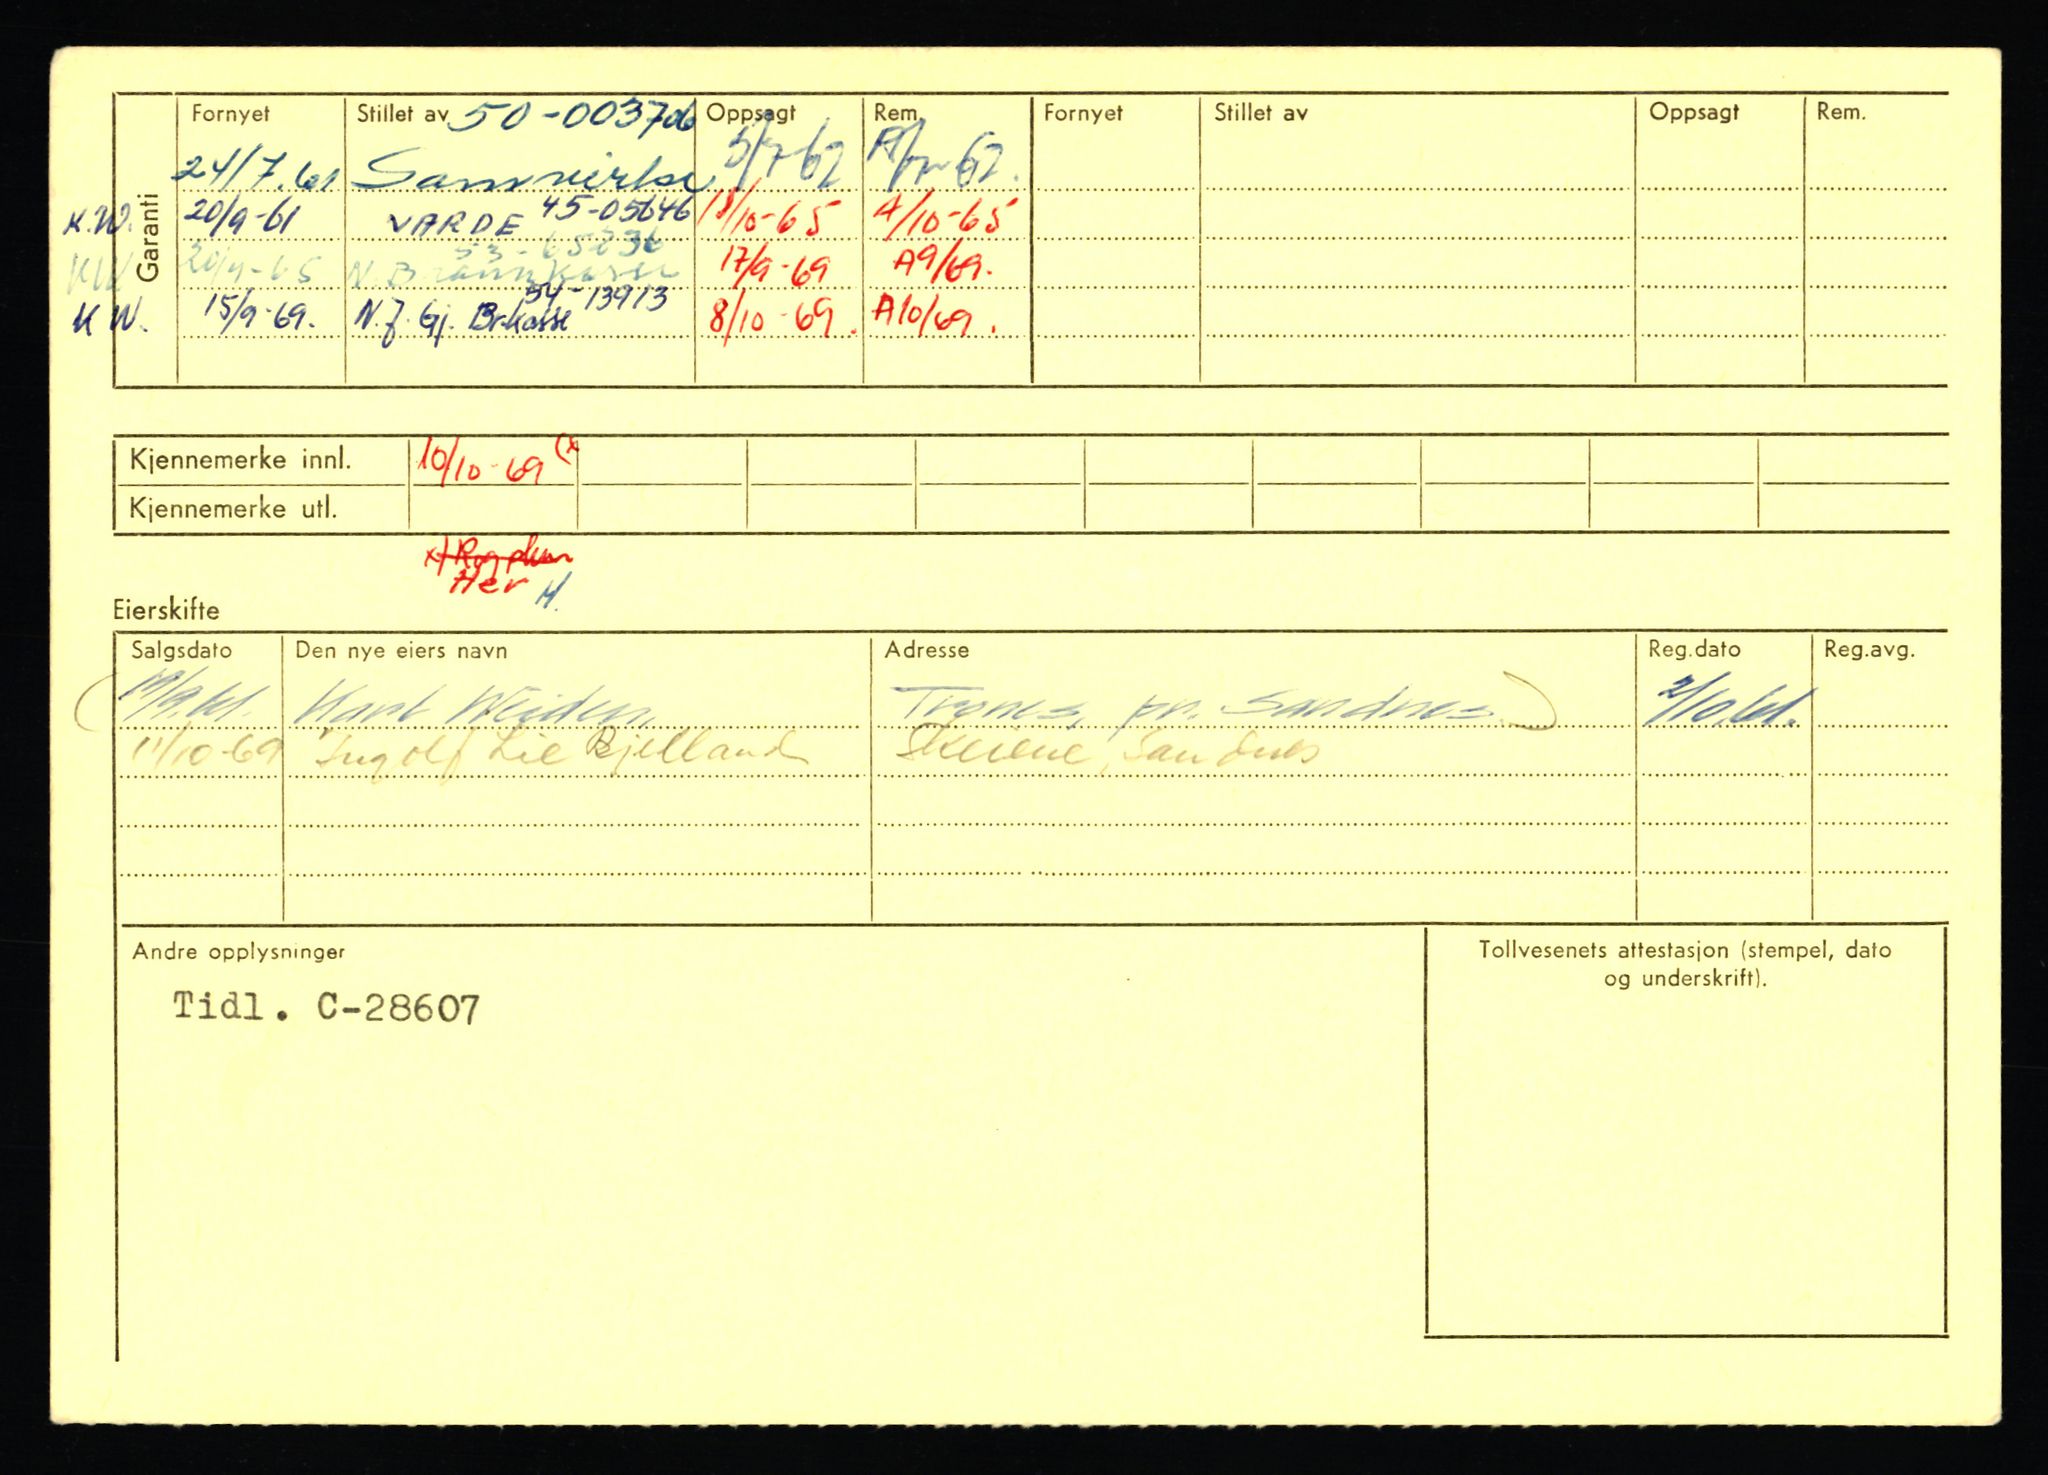 Garanti
Fornyet Stillet av 50-003706 Oppsagt Rem. Fornyet Stillet av Oppsagt Rem.
24/7.61 Samvirke 5/7-62 62.
K.W. 20/9-61 VARDE 45-05646 18/10-65 A/10-65
KW 20/9-65 N. Brannkasse 17/9-69 A9/69.
K W. 15/9-69. N.J. Gj. Br.kasse 54-13913 8/10-69. A10/69.
Kjennemerke innl. 10/10-69 (x
Kjennemerke utl.
Her
Eierskifte
Salgsdato Den nye eiers navn Adresse Reg.dato Reg.avg.
Trones, pr. Sandnes 2/10.61.
11/10-69 Ingolf Lie Bjelland Skeiene, Sandnes
Andre opplysninger
Tidl. C-28607
Tollvesenets attestasjon (stempel, dato
og underskrift).